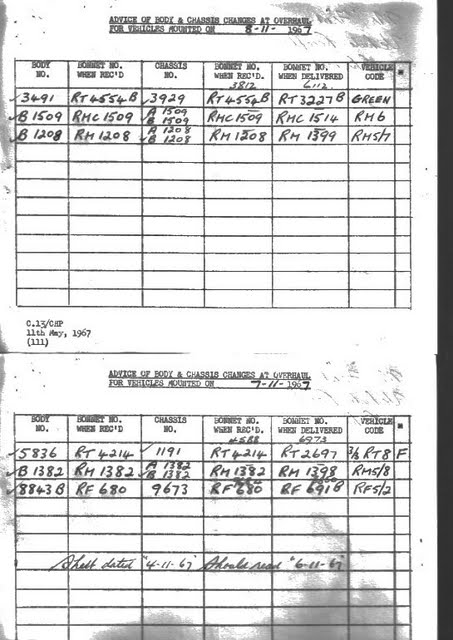 ADVICE OF BODY & CHASSIS CHANGES AT OVERHAUL
FOR VEHICLES MOUNTED ON 8-11-1967
BODY NO. BONNET NO. WHEN REC'D CHASSIS NO. BONNET NO. WHEN REC'D. BONNET NO. WHEN DELIVERED VEHICLE CODE *
3812 6112
✓3491 RT4554B ✓3929 RT4554B RT3227B GREEN
✓B1509 RMC1509 A 1509 B 1509 RMC1509 RMC1514 RM6
✓B1208 RM1208 A 1208 B 1208 RM1208 RM1399 RM5/7
C.13/CHP
11th May, 1967
(111)
ADVICE OF BODY & CHASSIS CHANGES AT OVERHAUL
FOR VEHICLES MOUNTED ON 7-11-1967
BODY NO. BONNET NO. WHEN REC'D CHASSIS NO. BONNET NO. WHEN REC'D. BONNET NO. WHEN DELIVERED VEHICLE CODE *
4588 6973
✓5836 RT4214 ✓1191 RT4214 RT2697 3/6 RT8 F
✓B1382 RM1382 A 1382 B 1382 RM1382 RM1398 RM5/8
✓8843B RF680 9673 RF680 RF691B RF5/2
Sheet dated "4-11-67" Should read "6-11-67"